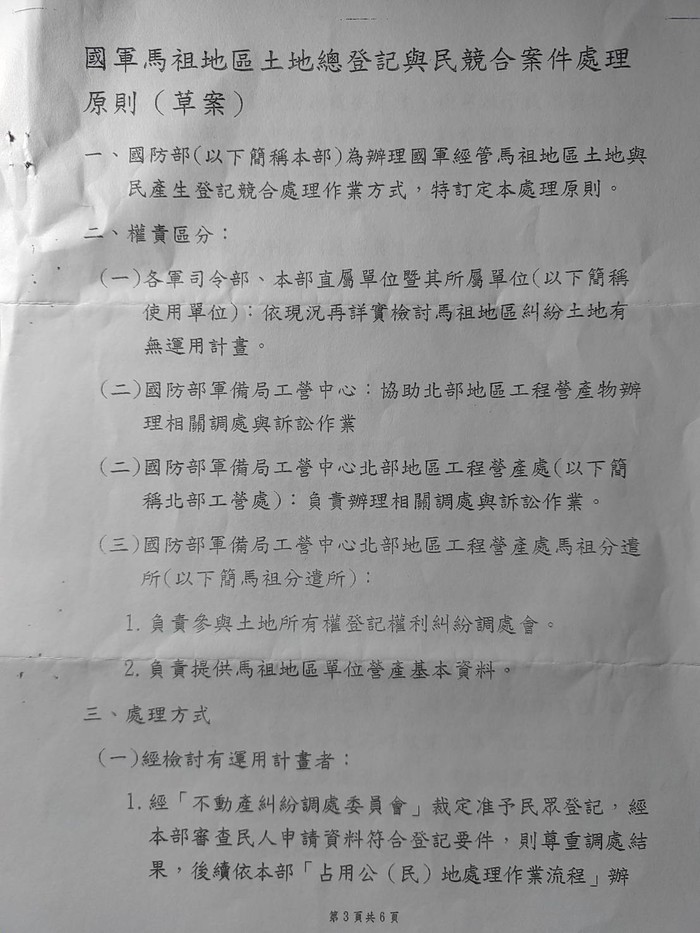 國軍馬祖地區土地總登記與民競合案件處理
原則（草案）
一、國防部(以下簡稱本部)為辦理國軍經管馬祖地區土地與
民產生登記競合處理作業方式，特訂定本處理原則。
二、權責區分：
(一)各軍司令部、本部直屬單位暨其所屬單位(以下簡稱
使用單位)：依現況再詳實檢討馬祖地區糾紛土地有
無運用計畫。
(二)國防部軍備局工營中心：協助北部地區工程營產物辦
理相關調處與訴訟作業
(二)國防部軍備局工營中心北部地區工程營產處(以下簡
稱北部工營處)：負責辦理相關調處與訴訟作業。
(三)國防部軍備局工營中心北部地區工程營產處馬祖分遣
所(以下簡馬祖分遣所)：
1.負責參與土地所有權登記權利糾紛調處會。
2.負責提供馬祖地區單位營產基本資料。
三、處理方式
(一)經檢討有運用計畫者：
1.經「不動產糾紛調處委員會」裁定准予民眾登記，經
本部審查民人申請資料符合登記要件，則尊重調處結
果，後續依本部「占用公（民）地處理作業流程」辦
第3頁共6頁